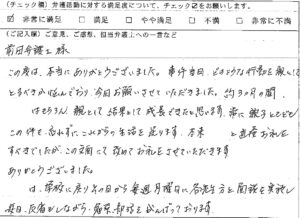 (チェック欄) 弁護活動に対する満足度について、チェック☑をお願いします。
☑ 非常に満足 □ 満足 □ やや満足 □ 不満 □ 非常に不満
(ご記入欄) ご意見、ご感想、担当弁護人への一言など
前田弁護士様
この度は、本当にありがとうございました。事件当日、どのような行動を親として
とるべきか悩んでおり、今日お願いさせていただきました。約3ヶ月の間、
はもちろん、親として結果として成長できたと思います。常に親子ともども
この件を忘れずに、これからも生活を送ります。本来 と直接お礼を
すべきでしたが、この文面にて改めてお礼をさせていただきます
ありがとうございます
は、学校に戻り、その日から毎週月曜日に 先生方と面談を実施し
毎日、反省しながら、勉強、部活をがんばっております